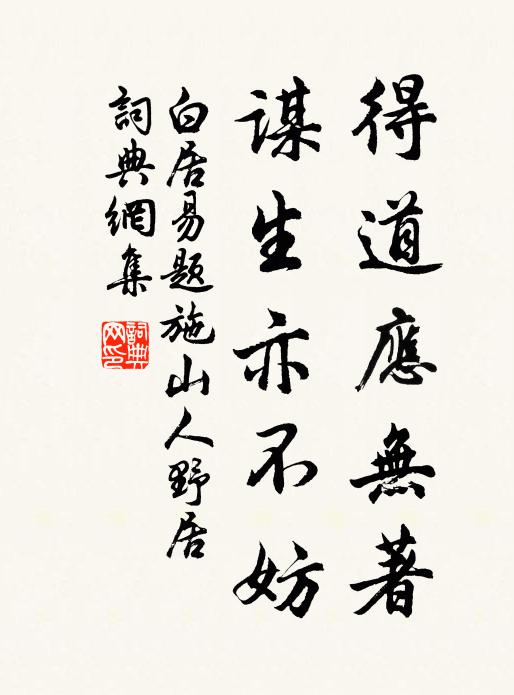 得道應無著
謀生亦不妨
白居易题施山人野居
詞典網集
詞典網印